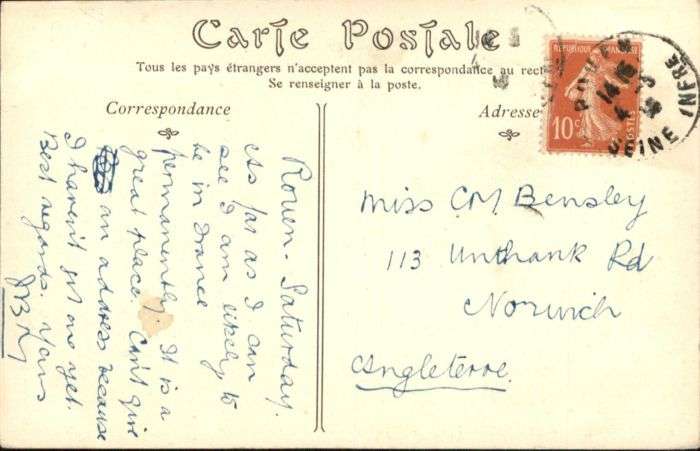 Carte Postale
Tous les pays étrangers n'acceptent pas la correspondance au rect
Se renseigner à la poste.
Correspondance
Adresse
Rouen - Saturday.
As far as I can
see I am likely to
be in France
permanently. It is a
great place. Can't give
an address because
I haven't got one yet.
Best regards. Yours
Miss CM Bensley
113 Unthank Rd
Norwich
Angleterre
REPUBLIQUE FRANÇAISE
10c
POSTES
ROUEN
14
SEINE INFRE